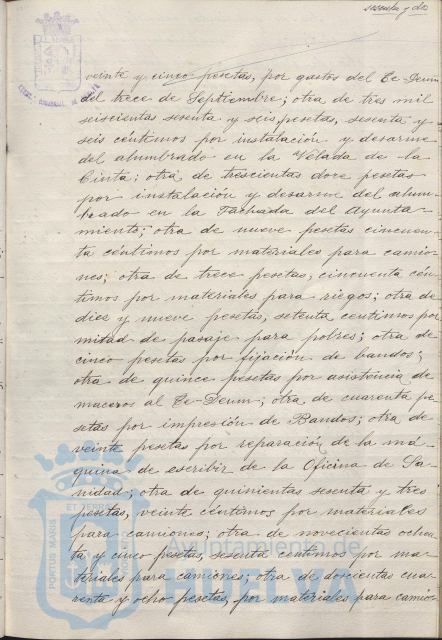 sesenta y dos
veinte y cinco pesetas, por gastos del Te-Deum
del trece de Septiembre; otra de tres mil
seiscientas sesenta y seis pesetas, sesenta y
seis céntimos por instalación y desarme
del alumbrado en la Velada de la
Cinta; otra de trescientas doce pesetas
por instalación y desarme del alum-
brado en la Fachada del Ayunta-
miento; otra de nueve pesetas cincuen-
ta céntimos por materiales para camio-
nes; otra de trece pesetas, cincuenta cén-
timos por materiales para riegos; otra de
diez y nueve pesetas, setenta centimos por
mitad de pasaje para pobres; otra de
cinco pesetas por fijación de bandos;
otra de quince pesetas por asistencia de
maceros al Te-Deum; otra de cuarenta pe-
setas por impresión de Bandos; otra de
veinte pesetas por reparación de la má-
quina de escribir de la Oficina de Sa-
nidad; otra de quinientas sesenta y tres
pesetas, veinte céntimos por materiales
para camiones; otra de novecientas ochen-
ta y cinco pesetas, sesenta centimos por ma-
teriales para camiones; otra de doscientas cua-
renta y ocho pesetas, por materiales para camio-
PORTUS MARIS
Ayuntamiento de
HUELVA